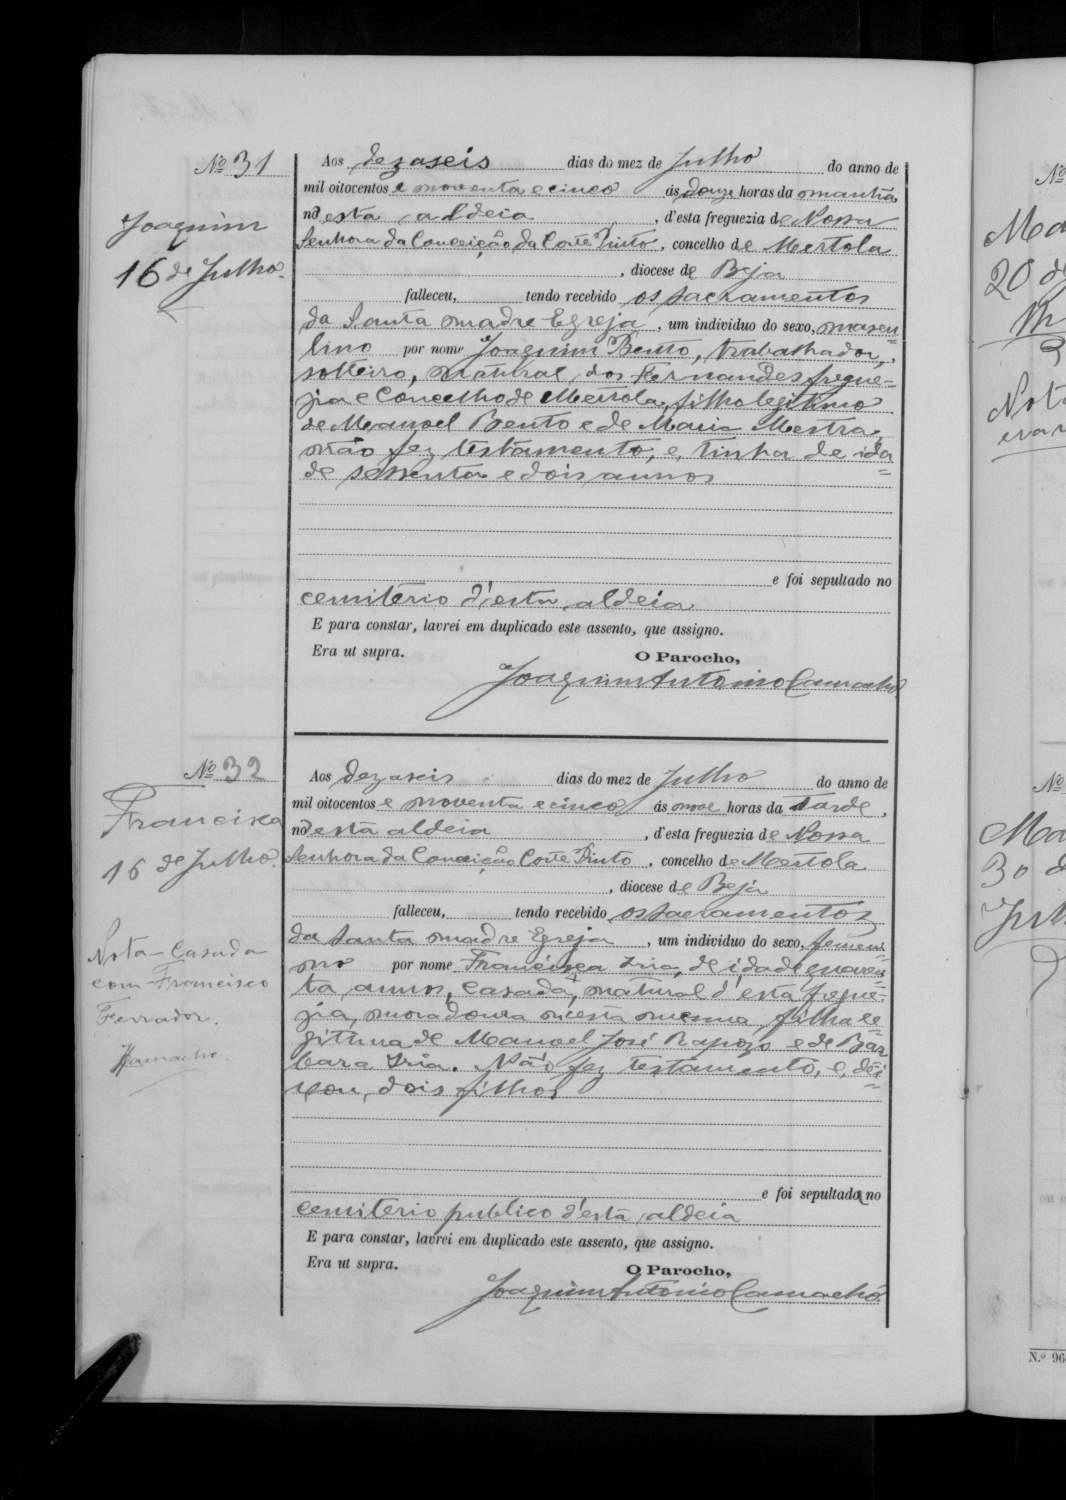 Nº 31
Joaquim
16 de Julho.
Aos dezaseis dias do mez de Julho do anno de
mil oitocentos e noventa e cinco ás doze horas da manhã,
nesta aldeia, d'esta freguezia de Nossa
Senhora da Conceição da Corte Pinto, concelho de Mertola
, diocese de Beja
falleceu, tendo recebido os sacramentos
da Santa madre Egreja, um individuo do sexo, mascu
lino por nome Joaquim Bento, trabalhador,
solteiro, natural dos Fernandes fregue-
zia e Concelho de Mertola, filho legitimo
de Manoel Bento e de Maria Mestra,
não fez testamento, e, tinha de ida
de sessenta e dois annos
e foi sepultado no
cemiterio d'esta aldeia
E para constar, lavrei em duplicado este assento, que assigno.
Era ut supra. O Parocho,
Joaquim Antonio Camacho
Nº 32
Francisca
16 de Julho.
Nota - Casada
com Francisco
Ferrador.
Camacho.
Aos dezaseis dias do mez de Julho do anno de
mil oitocentos e noventa e cinco ás nove horas da Tarde,
nesta aldeia, d'esta freguezia de Nossa
Senhora da Conceição Corte Pinto, concelho de Mertola
, diocese de Beja
falleceu, tendo recebido os sacramentos
da Santa madre Egreja, um individuo do sexo, femeni
no por nome Francisca Iria, de idade quaren
ta annos, Casada, natural d'esta fregue-
zia, moradoura nesta mesma filha le
gitima de Manoel José Rapozo e de Bar
bara Iria. Não fez testamento, e, dei
xou dois filhos
e foi sepultada no
cemiterio publico d'esta aldeia
E para constar, lavrei em duplicado este assento, que assigno.
Era ut supra. O Parocho,
Joaquim Antonio Camacho
Nº
Ma
20 de
Nota
Nº
Ma
30 d
Jul
N.º 96